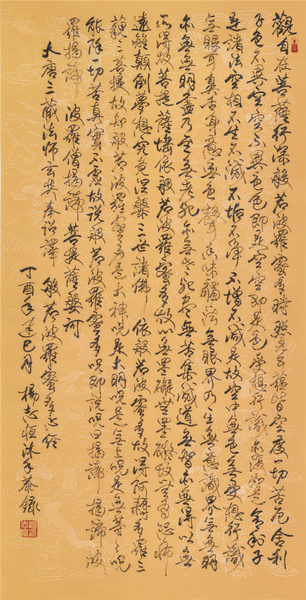 觀自在菩薩行深般若波羅蜜多時照見五蘊皆空度一切苦厄舍利
子色不異空空不異色色即是空空即是色受想行識亦復如是舍利子
是諸法空相不生不滅不垢不淨不增不減是故空中無色無受想行識
無眼耳鼻舌身意無色聲香味觸法無眼界乃至無意識界無無明
亦無無明盡乃至無老死亦無老死盡無苦集滅道無智亦無得以無
所得故菩提薩埵依般若波羅蜜多故心無罣礙無罣礙故無有恐怖
遠離顛倒夢想究竟涅槃三世諸佛依般若波羅蜜多故得阿耨多羅三
藐三菩提故知般若波羅蜜多是大神咒是大明咒是無上咒是無等等咒
能除一切苦真實不虛故說般若波羅蜜多咒即說咒曰揭諦揭諦波
羅揭諦波羅僧揭諦菩提薩婆訶
大唐三藏法師玄奘奉詔譯般若波羅蜜多心經
丁酉年巳月楊志恒沐手恭錄